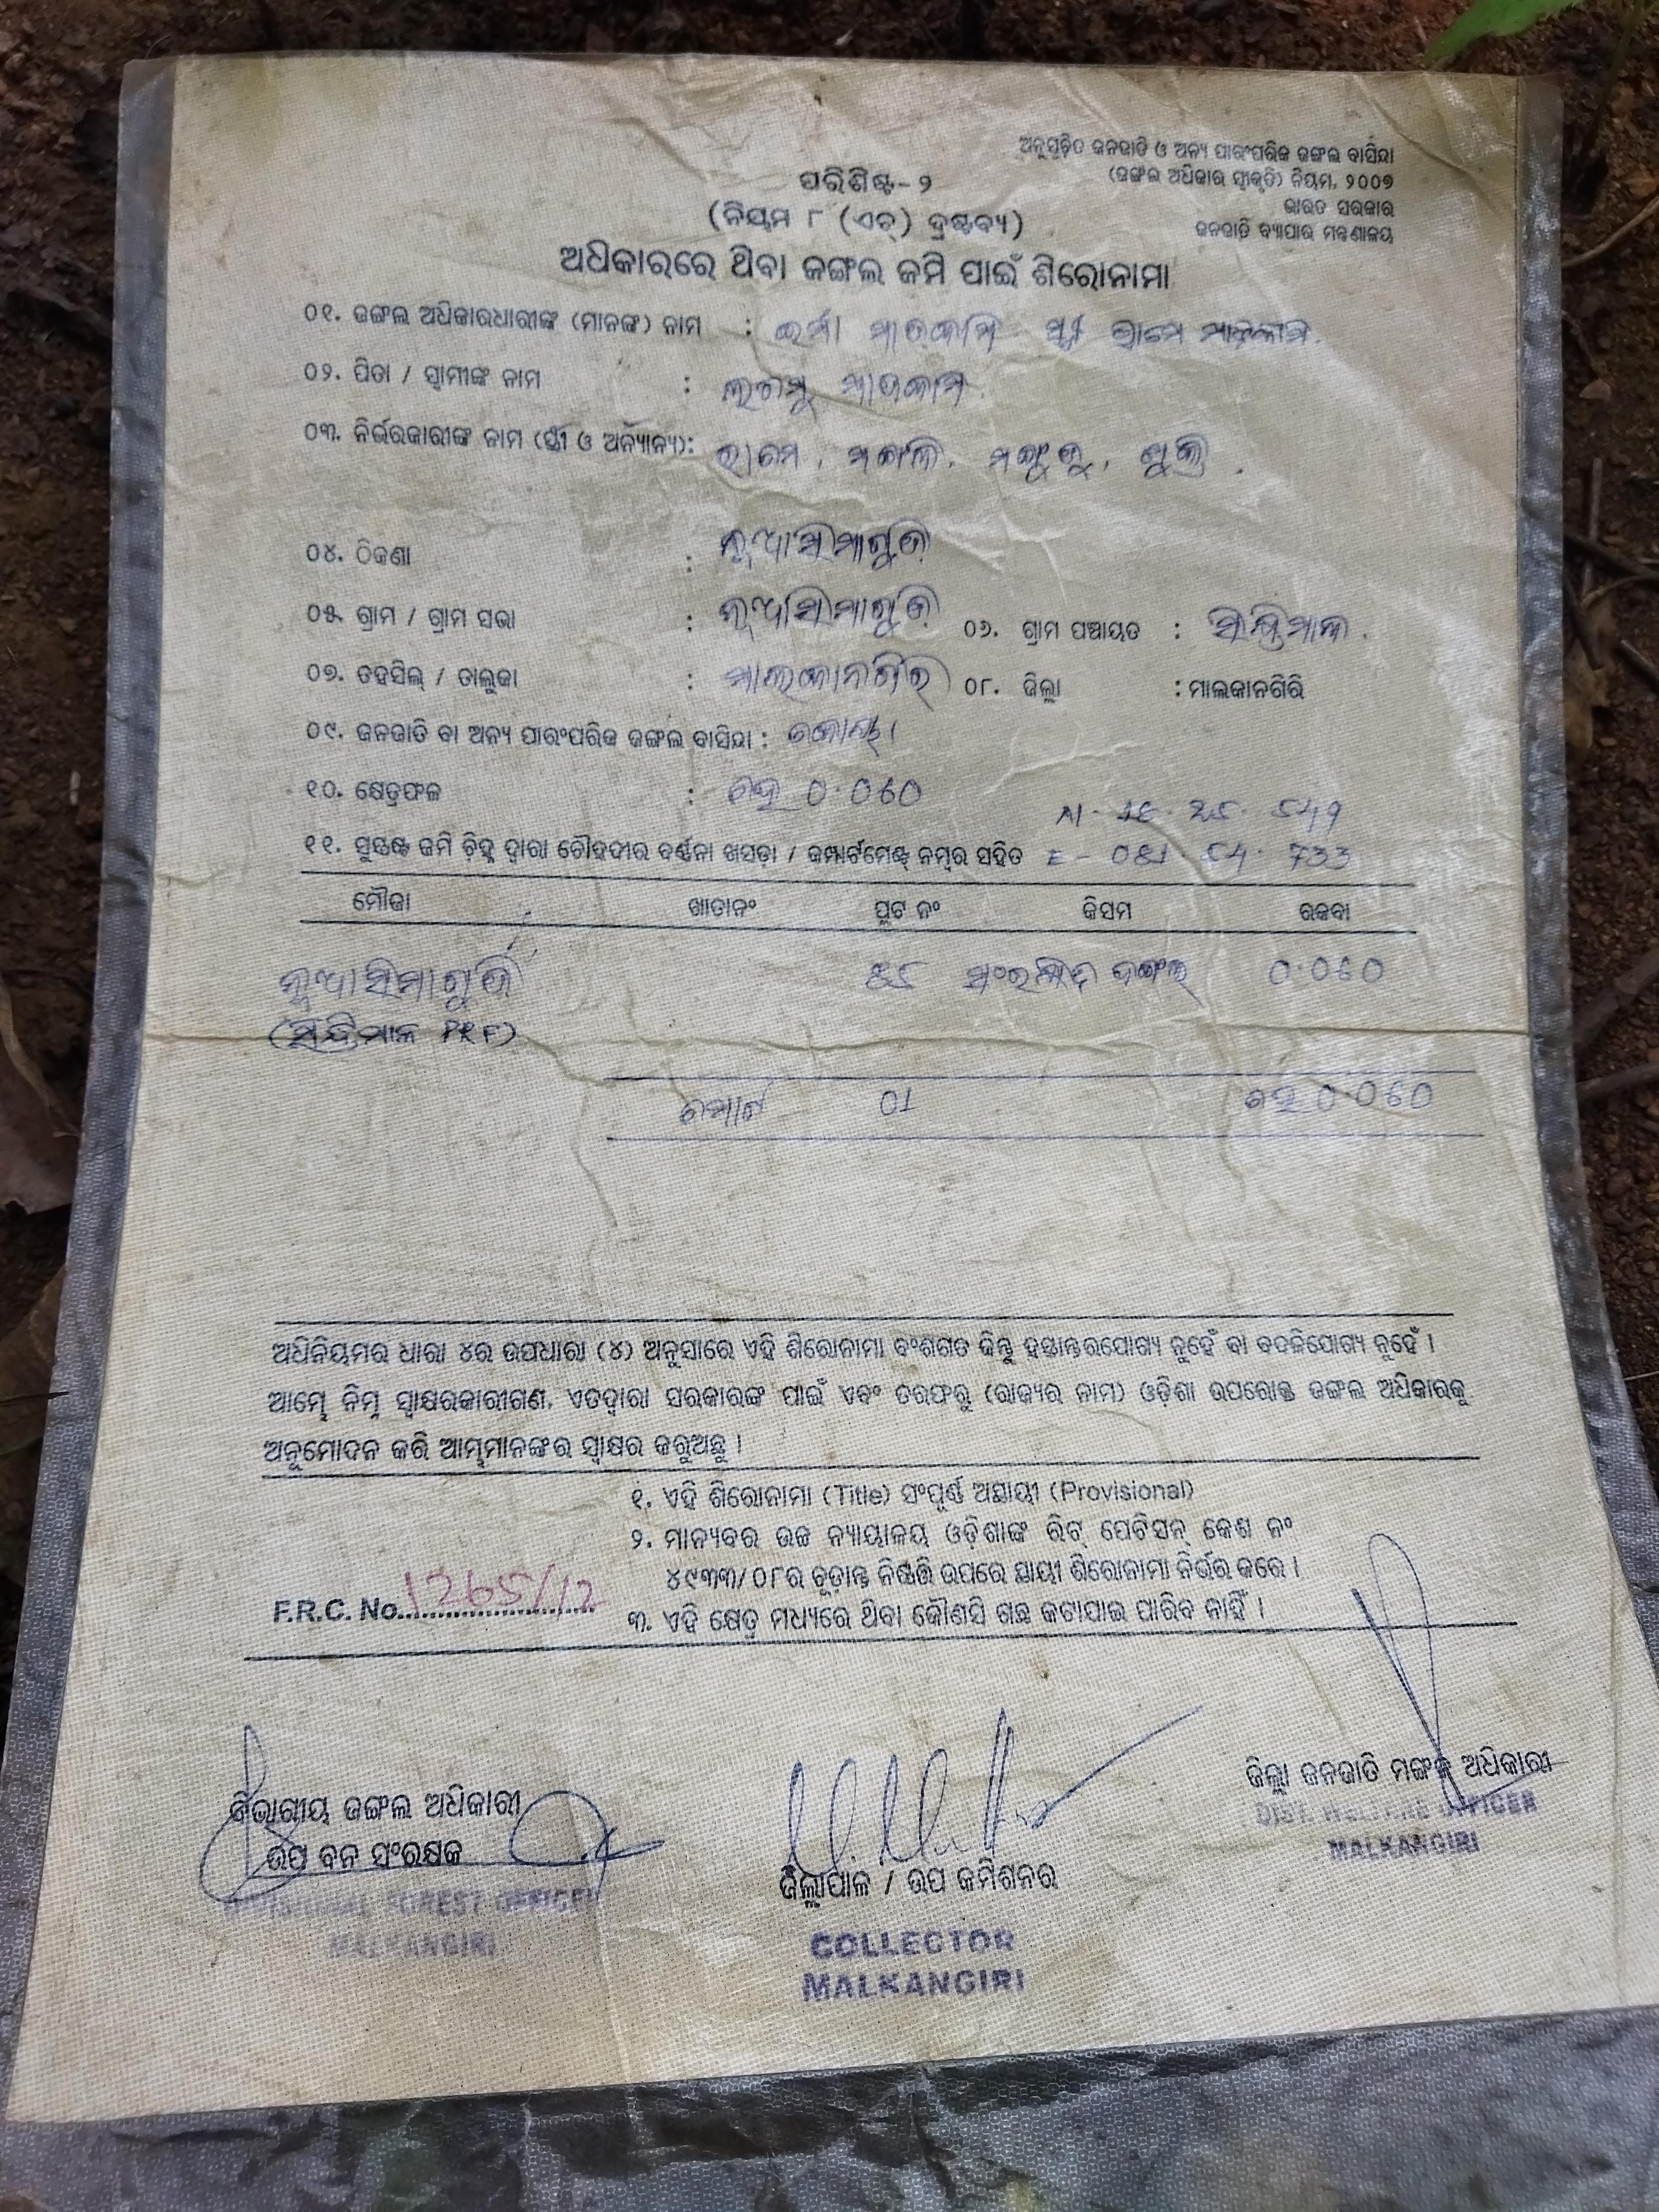 ଅନୁସୂଚିତ ଜନଜାତି ଓ ଅନ୍ୟ ପାରଂପରିକ ଜଙ୍ଗଲ ବାସିନ୍ଦା
(ଜଙ୍ଗଲ ଅଧିକାର ସ୍ୱୀକୃତି) ନିୟମ, ୨୦୦୭
ଭାରତ ସରକାର
ଜନଜାତି ବ୍ୟାପାର ମନ୍ତ୍ରଣାଳୟ
ପରିଶିଷ୍ଟ-୨
(ନିୟମ ୮ (ଏଚ୍) ଦ୍ରଷ୍ଟବ୍ୟ)
ଅଧିକାରରେ ଥିବା ଜଙ୍ଗଲ ଜମି ପାଇଁ ଶିରୋନାମା
୦୧. ଜଙ୍ଗଲ ଅଧିକାରଧାରୀଙ୍କ (ମାନଙ୍କ) ନାମ :
୦୨. ପିତା / ସ୍ୱାମୀଙ୍କ ନାମ :
୦୩. ନିର୍ଭରକାରୀଙ୍କ ନାମ (ସ୍ତ୍ରୀ ଓ ଅନ୍ୟାନ୍ୟ):
୦୪. ଠିକଣା : ନୂଆସିମାଗୁଡ଼ା
୦୫. ଗ୍ରାମ / ଗ୍ରାମ ସଭା : ନୂଆସିମାଗୁଡ଼ା ୦୬. ଗ୍ରାମ ପଞ୍ଚାୟତ : ସିନ୍ଧିମାଳ
୦୭. ତହସିଲ୍ / ତାଲୁକା : ମାଲକାନଗିରି ୦୮. ଜିଲ୍ଲା : ମାଲକାନଗିରି
୦୯. ଜନଜାତି ବା ଅନ୍ୟ ପାରଂପରିକ ଜଙ୍ଗଲ ବାସିନ୍ଦା : କୋୟା
୧୦. କ୍ଷେତ୍ରଫଳ : ହେ 0.060
୧୧. ସୁସ୍ପଷ୍ଟ ଜମି ଚିହ୍ନ ଦ୍ୱାରା ଚୌହଦୀର ବର୍ଣ୍ଣନା ଖସଡ଼ା / କମ୍ପାର୍ଟମେଣ୍ଟ ନମ୍ବର ସହିତ
ମୌଜା ଖାତାନଂ ପ୍ଲଟ ନଂ କିସମ ରକବା
ନୂଆସିମାଗୁଡ଼ା 85 ସଂରକ୍ଷିତ ଜଙ୍ଗଲ 0.060
(ସିନ୍ଧିମାଳ PRF)
ମୋଟ 01 ହେ 0.060
ଅଧିନିୟମର ଧାରା ୪ର ଉପଧାରା (୪) ଅନୁସାରେ ଏହି ଶିରୋନାମା ବଂଶଗତ କିନ୍ତୁ ହସ୍ତାନ୍ତରଯୋଗ୍ୟ ନୁହେଁ ବା ବଦଳିଯୋଗ୍ୟ ନୁହେଁ ।
ଆମ୍ଭେ ନିମ୍ନ ସ୍ୱାକ୍ଷରକାରୀଗଣ, ଏତଦ୍ୱାରା ସରକାରଙ୍କ ପାଇଁ ଏବଂ ତରଫରୁ (ରାଜ୍ୟର ନାମ) ଓଡ଼ିଶା ଉପରୋକ୍ତ ଜଙ୍ଗଲ ଅଧିକାରକୁ
ଅନୁମୋଦନ କରି ଆମ୍ଭମାନଙ୍କର ସ୍ୱାକ୍ଷର କରୁଅଛୁ ।
୧. ଏହି ଶିରୋନାମା (Title) ସଂପୂର୍ଣ୍ଣ ଅସ୍ଥାୟୀ (Provisional)
୨. ମାନ୍ୟବର ଉଚ୍ଚ ନ୍ୟାୟାଳୟ ଓଡ଼ିଶାଙ୍କ ରିଟ୍ ପେଟିସନ୍ କେଶ ନଂ
୪୯୩୩/୦୮ର ଚୂଡ଼ାନ୍ତ ନିଷ୍ପତ୍ତି ଉପରେ ସ୍ଥାୟୀ ଶିରୋନାମା ନିର୍ଭର କରେ ।
F.R.C. No. 1265/12
୩. ଏହି କ୍ଷେତ୍ର ମଧ୍ୟରେ ଥିବା କୌଣସି ଗଛ କଟାଯାଇ ପାରିବ ନାହିଁ ।
ବିଭାଗୀୟ ଜଙ୍ଗଲ ଅଧିକାରୀ
ଉପ ବନ ସଂରକ୍ଷକ
DIVISIONAL FOREST OFFICER
MALKANGIRI
ଜିଲ୍ଲାପାଳ / ଉପ କମିଶନର
COLLECTOR
MALKANGIRI
ଜିଲ୍ଲା ଜନଜାତି ମଙ୍ଗଳ ଅଧିକାରୀ
DIST. WELFARE OFFICER
MALKANGIRI